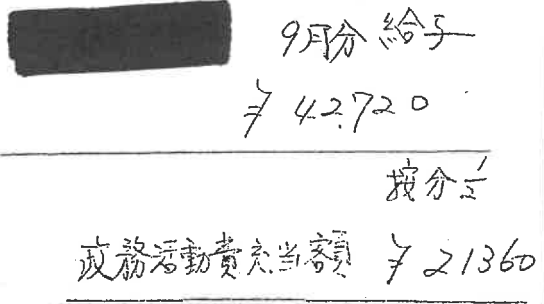 9月分 給与
¥ 42,720
按分 1/2
政務活動費充当額 ¥ 21360